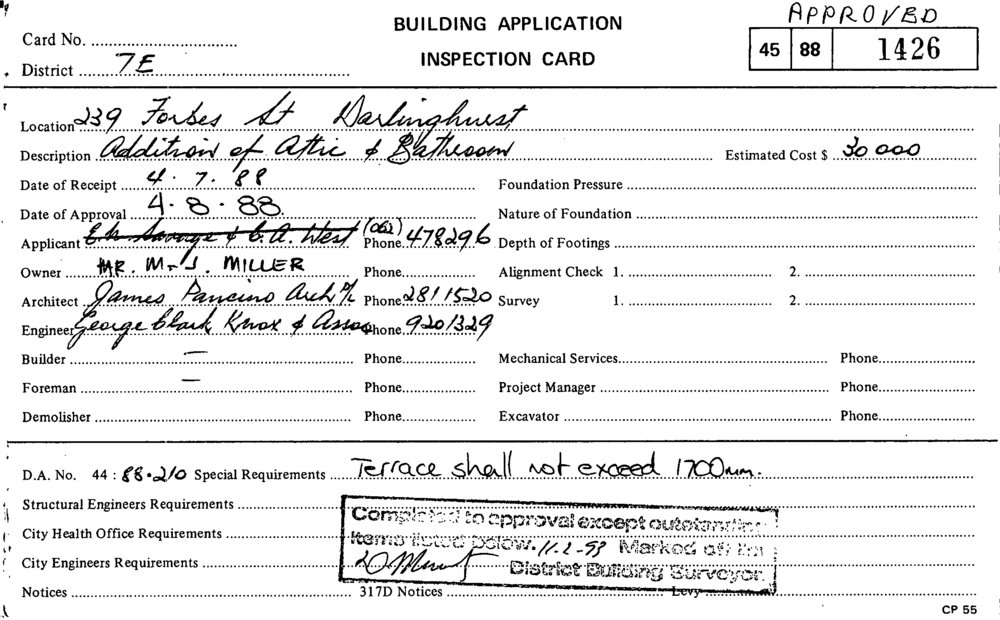 BUILDING APPLICATION
INSPECTION CARD
APPROVED
45 88 1426
Card No.
District 7E
Location 239 Forbes St Darlinghurst
Description Addition of Attic & Bathroom Estimated Cost $ 30 000
Date of Receipt 4. 7. 88 Foundation Pressure
Date of Approval 4. 8. 88. Nature of Foundation
Applicant & C. A. West Phone (062) 478296 Depth of Footings
Owner MR. M. J. MILLER Phone Alignment Check 1. 2.
Architect James Pancino Arch P/L Phone 2811520 Survey 1. 2.
Engineer George Clark Knox & Assoc Phone. 9201329
Builder — Phone Mechanical Services Phone
Foreman — Phone Project Manager Phone
Demolisher Phone Excavator Phone
D.A. No. 44 : 88.210 Special Requirements Terrace shall not exceed 1700mm.
Structural Engineers Requirements
City Health Office Requirements
City Engineers Requirements
Completed to approval except outstanding
items listed below. 11.2-93 Marked off
District Building Surveyor.
Notices 317D Notices Levy
CP 55